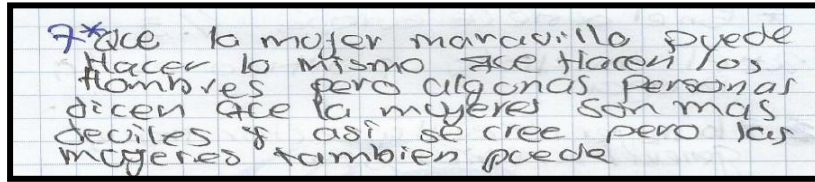 7* Qce la mujer maravilla puede
Hacer lo mismo qce Hacen los
Hombres pero algunas personas
dicen qce la muyeres son mas
deviles y asi se cree pero las
mugeres tambien puede